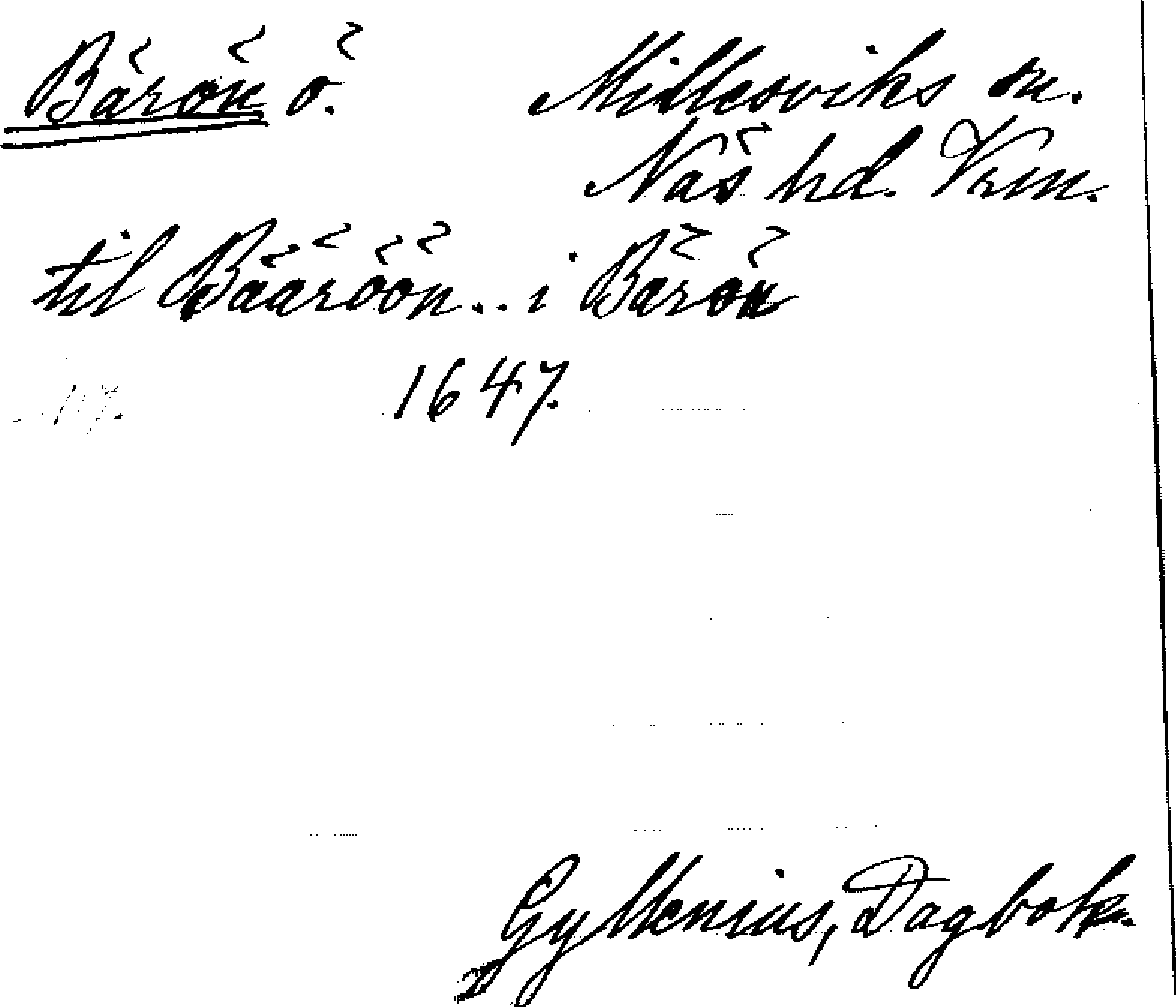 Bärön ö.
Millesviks sn.
Näs hd. Vrm.
til Bääröön.. i Bärön
1647.
Gyllenius, Dagbok.